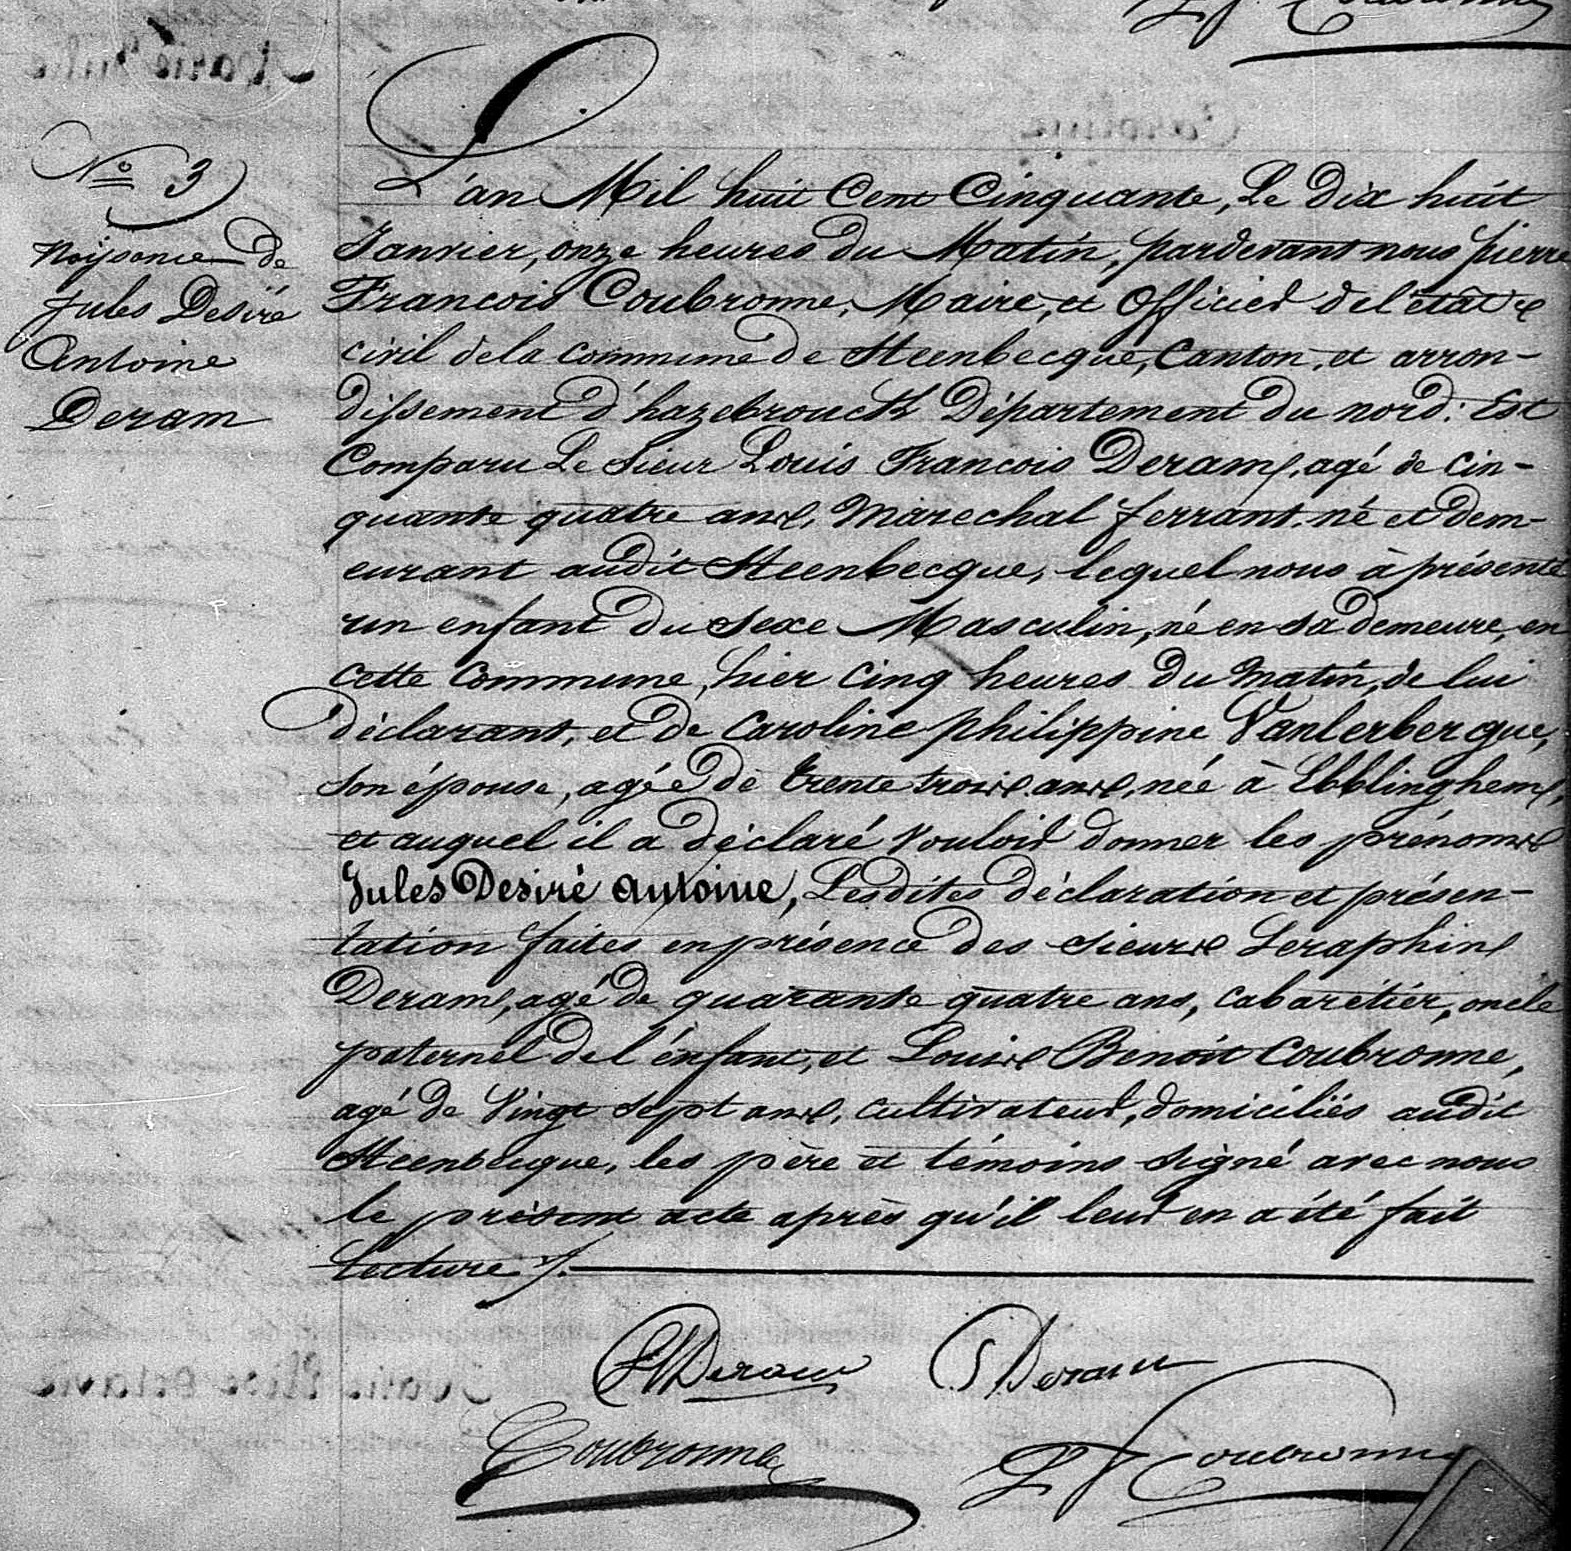 N° 3
Naissance de
Jules Desiré
Antoine
Deram
L'an Mil huit Cent Cinquante, Le Dix huit
Janvier, onze heures du Matin, pardevant nous pierre
Francois Coubronne, Maire, et Officier de l'état
civil de la commune de Steenbecque, Canton, et arron-
dissement d'hazebrouck Département du nord: Est
Comparu Le Sieur Louis Francois Deram, agé de cin-
quante quatre ans, Marechal ferrant, né et dem-
eurant audit Steenbecque, lequel nous à présenté
un enfant du Sexe Masculin, né en sa demeure, en
cette Commune, hier cinq heures du matin, de lui
déclarant, et de Caroline philippine Vanlerbergue,
son épouse, agée de trente trois ans, née à Ebblinghem,
et auquel il a déclaré vouloir donner les prénoms
Jules Desiré Antoine, Lesdites déclaration et présen-
tation faites en présence des sieurs Seraphin
Deram, agé de quarante quatre ans, cabarétiér, oncle
paternel de l'enfant, et Louis Benoit Coubronne,
agé de Vingt Sept ans, cultivateur, domiciliés audit
Steenbecque, les père et témoins signé avec nous
le présent acte après qu'il leur en a été fait
Lecture ./.
Deram S Deram
Coubronne P F Coubronne